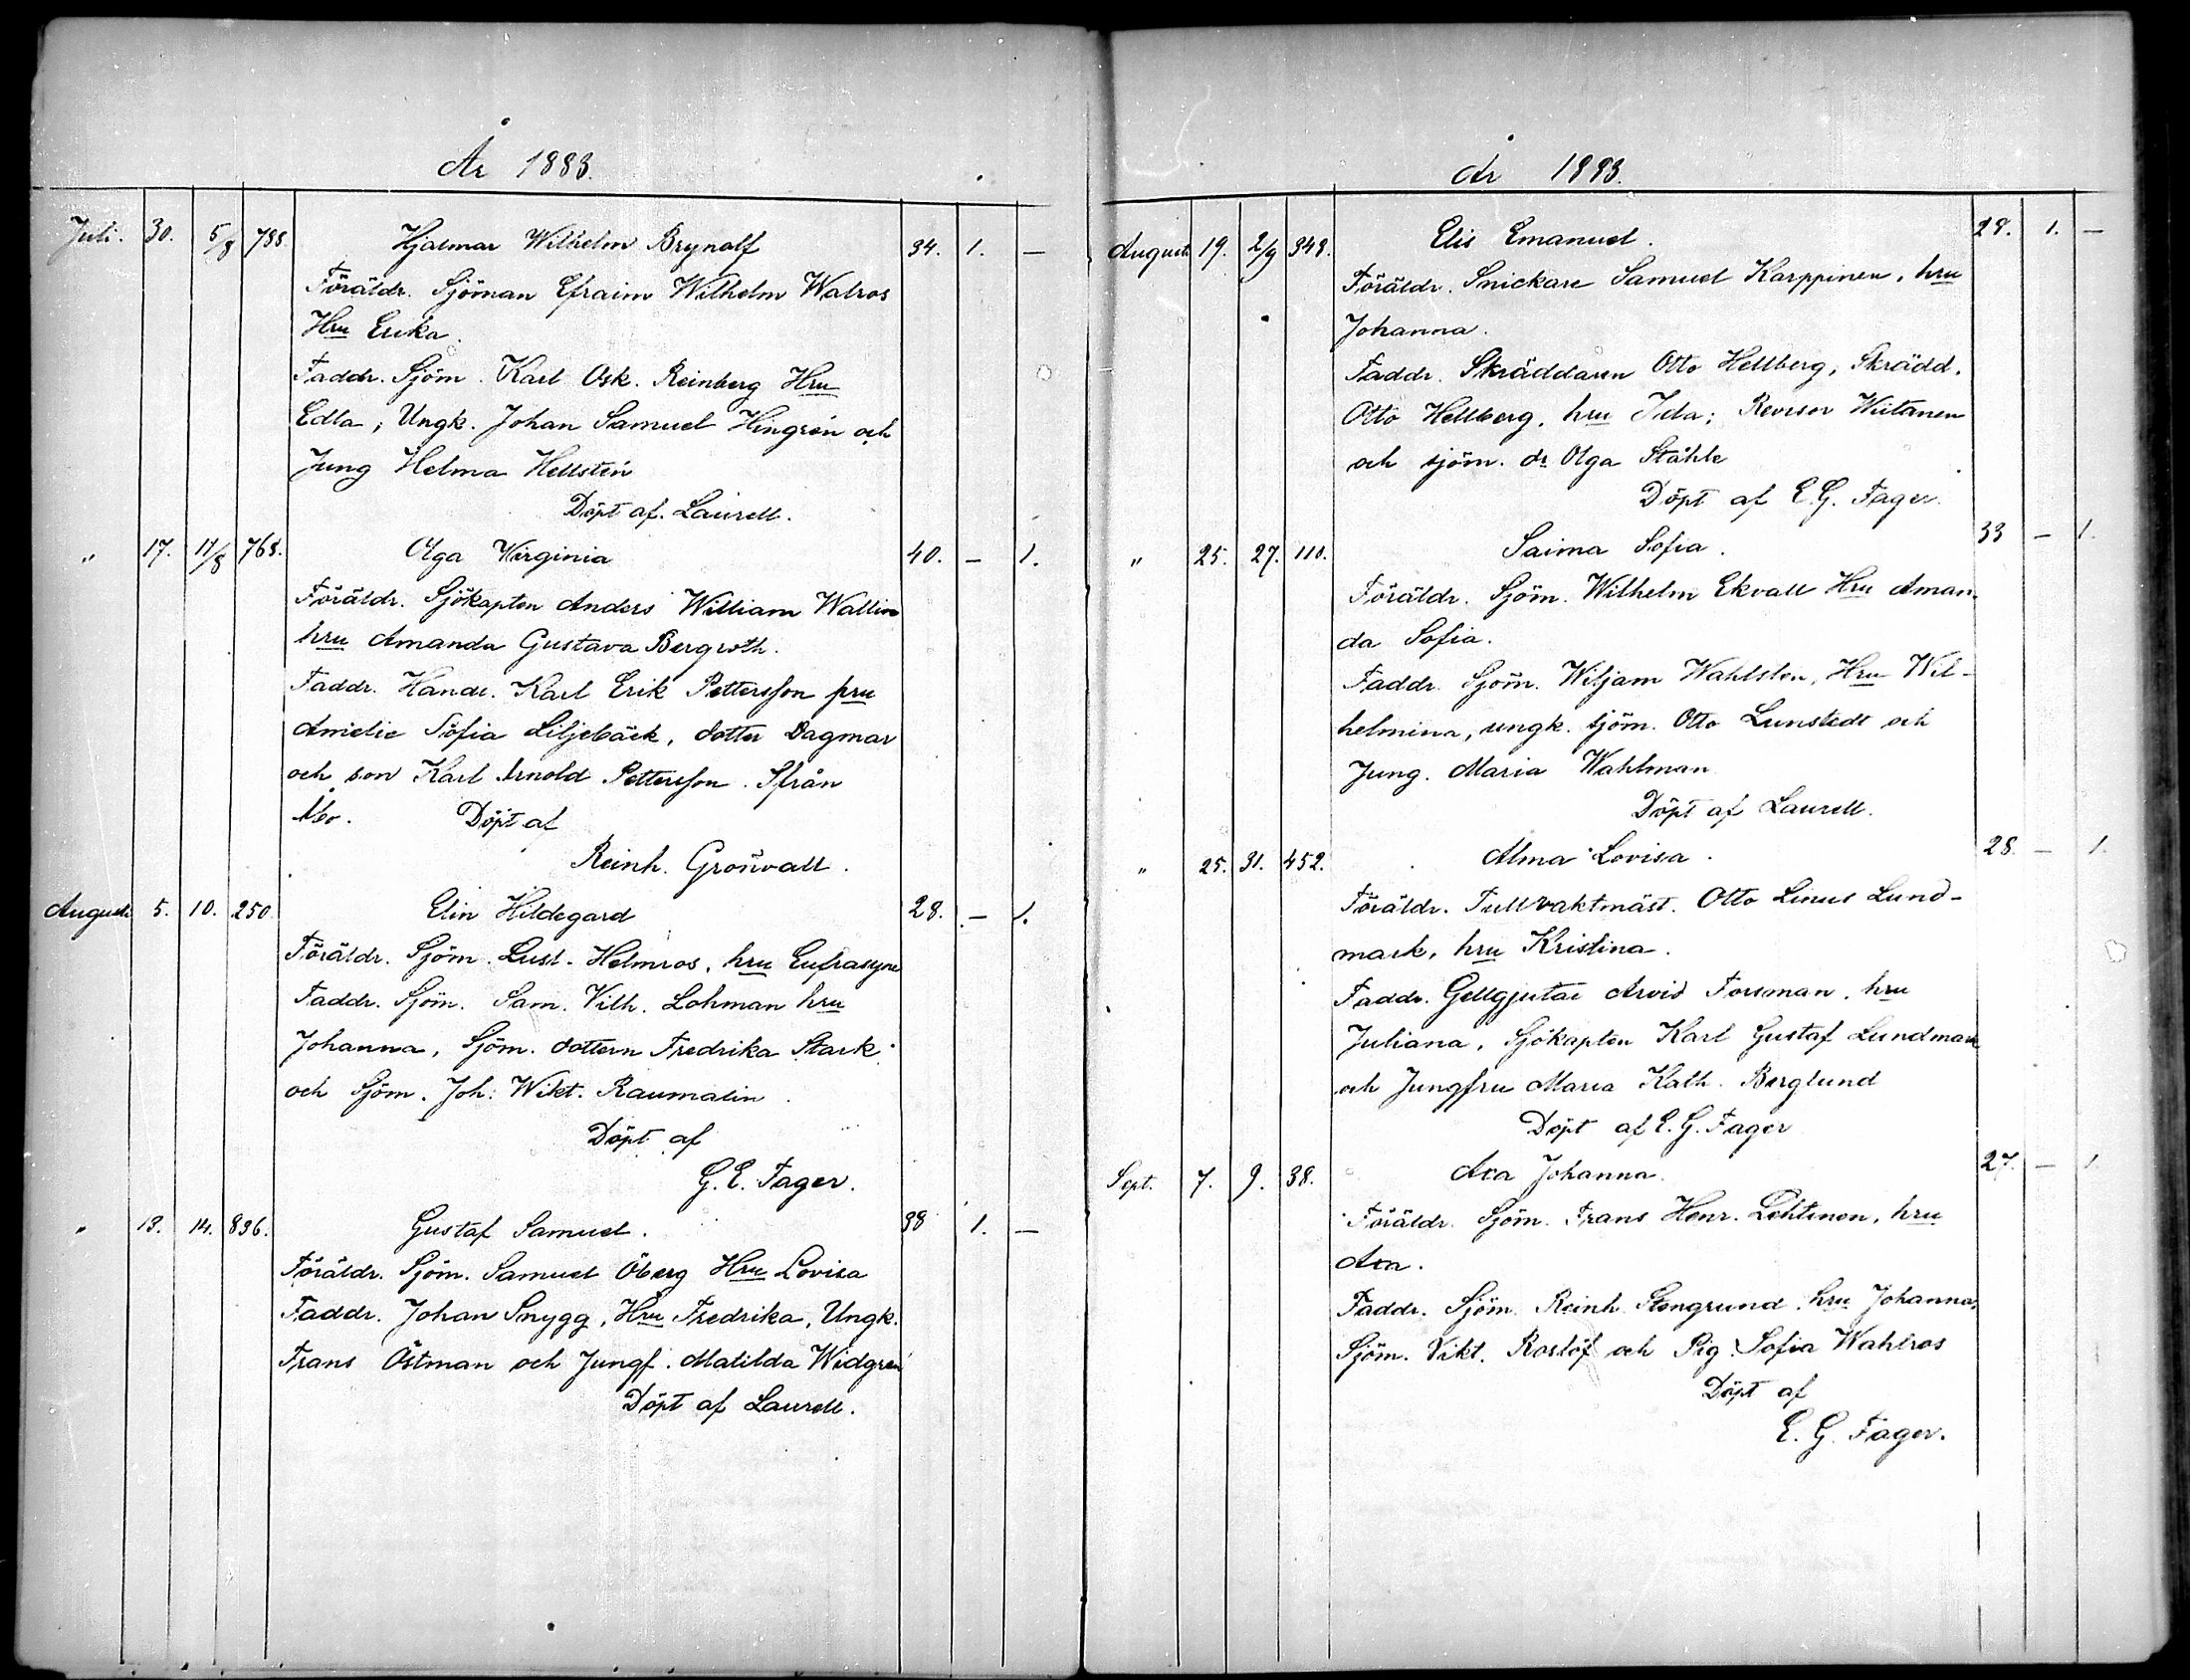 År 1883.
Juli. 30. 5/8 788. Hjalmar Wilhelm Brynolf 34. 1. —
Föräldr. Sjöman Efraim Wilhelm Walros
Hru Erika.
Faddr. Sjöm. Karl Osk. Reinberg Hru
Edla, Ungk. Johan Samuel Hingrén och
Jung Helma Hellstén
Döpt af. Laurell.
" 17. 11/8 768. Olga Wirginia 40. — 1.
Föräldr. Sjökapten Anders William Wallin
hru Amanda Gustava Bergroth.
Faddr. Handl. Karl Erik Pettersson fru
Amelie Sofia Liljebäck, dotter Dagmar
och son Karl Arnold Pettersson. Ifrån
Åbo. Döpt af
Reinh. Grönvall.
Augusti 5. 10. 250. Elin Hildegard 28. — 1.
Föräldr. Sjöm. Gust. Helmros, hru Eufrasyne
Faddr. Sjöm. Sam. Vilh. Lohman hru
Johanna, Sjöm. dottern Fredrika Stark
och Sjöm. Joh: Wikt. Raumalin.
Döpt af
G. E. Fager.
" 13. 14. 836. Gustaf Samuel. 38 1. —
Föräldr. Sjöm. Samuel Öberg Hru Lovisa
Faddr. Johan Snygg, Hru Fredrika, Ungk.
Frans Östman och Jungf. Matilda Widgren
Döpt af Laurell.
År 1883.
Augusti 19. 2/9 348. Elis Emanuel. 29. 1. —
Föräldr. Snickare Samuel Karppinen, hru
Johanna.
Faddr. Skräddaren Otto Hellberg, Skrädd.
Otto Hellberg, hru Ida; Revisor Wiitanen
och sjöm. dr Olga Ståhle
Döpt af E. G. Fager.
" 25. 27. 110. Saima Sofia. 33 — 1.
Föräldr. Sjöm. Wilhelm Ekvall Hru Aman-
da Sofia.
Faddr. Sjöm. Wiljam Wahlsten, Hru Wil-
helmina, ungk. sjöm. Otto Lunstedt och
Jung. Maria Wahlman
Döpt af Laurell.
" 25. 31. 452. Alma Lovisa. 28. — 1.
Föräldr. Tullvaktmäst. Otto Linus Lund-
mark, hru Kristina.
Faddr. Gellgjutar Arvid Forsman, hru
Juliana, Sjökapten Karl Gustaf Lundmark
och Jungfru Maria Kath. Berglund
Döpt af E. G. Fager
Sept. 7. 9. 38. Ava Johanna. 27. — 1
Föräldr. Sjöm. Frans Henr. Lehtinen, hru
Ava.
Faddr. Sjöm. Reinh. Stengrund, hru Johanna,
Sjöm. Vikt. Roslöf och Pig. Sofia Wahlros
Döpt af
E. G. Fager.